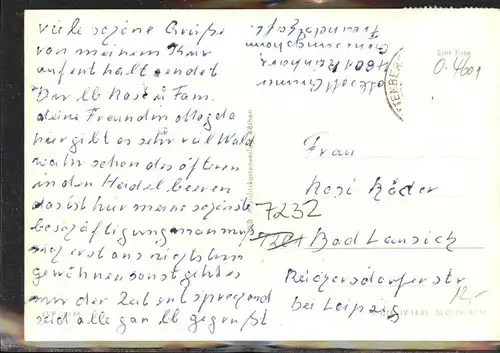 viele schöne Grüße
von meinem Kur
aufenthalt sendet
Dir lb Rosi u Fam.
deine Freundin Magda
hier gibt es sehr viel Wald
wahr schon des öfteren
in den Heidel beeren
das ist hier meine schönste
beschäftigung man muß
sich erst ans nichts tun
gewöhnen sonst geht es
mir der Zeit entsprechend
seid alle ganz lb gegrüßt
Echt Foto
0-4601
Frau
Rosi Röder
7232
Bad Lausick
Reichersdorferstr
bei Leipzig
12,-